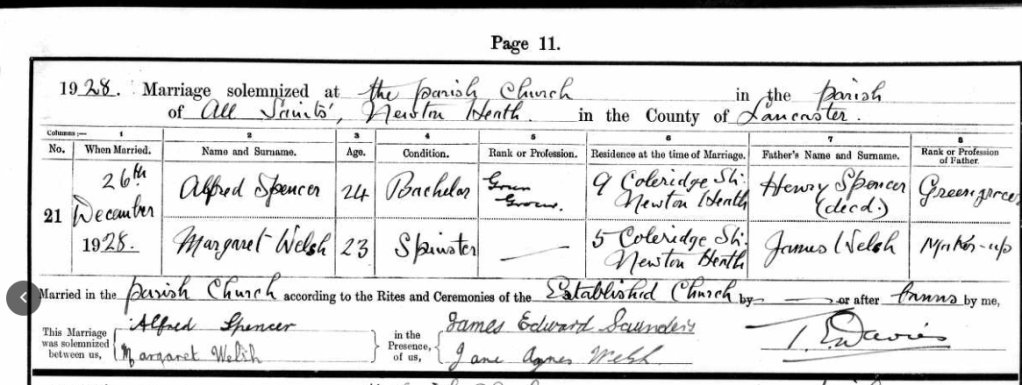 Page 11.
1928. Marriage solemnized at the parish Church in the Parish
of All Saints', Newton Heath. in the County of Lancaster.
Columns:— 1 2 3 4 5 6 7 8
No. When Married. Name and Surname. Age. Condition. Rank or Profession. Residence at the time of Marriage. Father's Name and Surname. Rank or Profession of Father.
21 26th December 1928. Alfred Spencer 24 Bachelor Green Grocer. 9 Coleridge St. Newton Heath Henry Spencer (decd.) Greengrocer
Margaret Welsh 23 Spinster — 5 Coleridge St. Newton Heath James Welsh Maker-up
Married in the parish Church according to the Rites and Ceremonies of the Established Church by — or after Banns by me,
This Marriage was solemnized between us,
Alfred Spencer
Margaret Welsh
in the Presence, of us,
James Edward Saunders
Jane Agnes Welsh
Davies